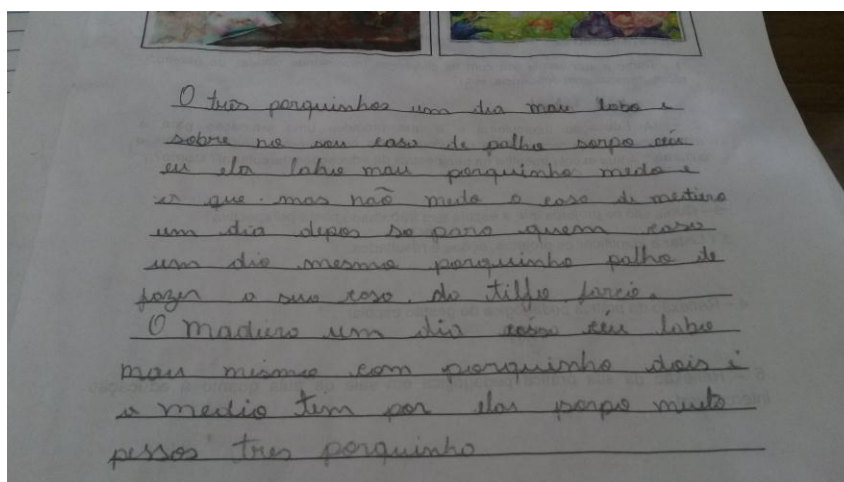 O tres porquinhos um dia mau lobo e
sobre no seu casa de palha sorpo céu
eu elas lobo mau porquinho medo e
que. mas não muda o casa de
um dia depos so para quem casa
um dia mesmo porquinho palha de
fazer o sua casa. do
O maduro um dia céu lobo
mau mismo com porquinho dois i
o medio tem por elas porpo muito
pessos tres porquinho